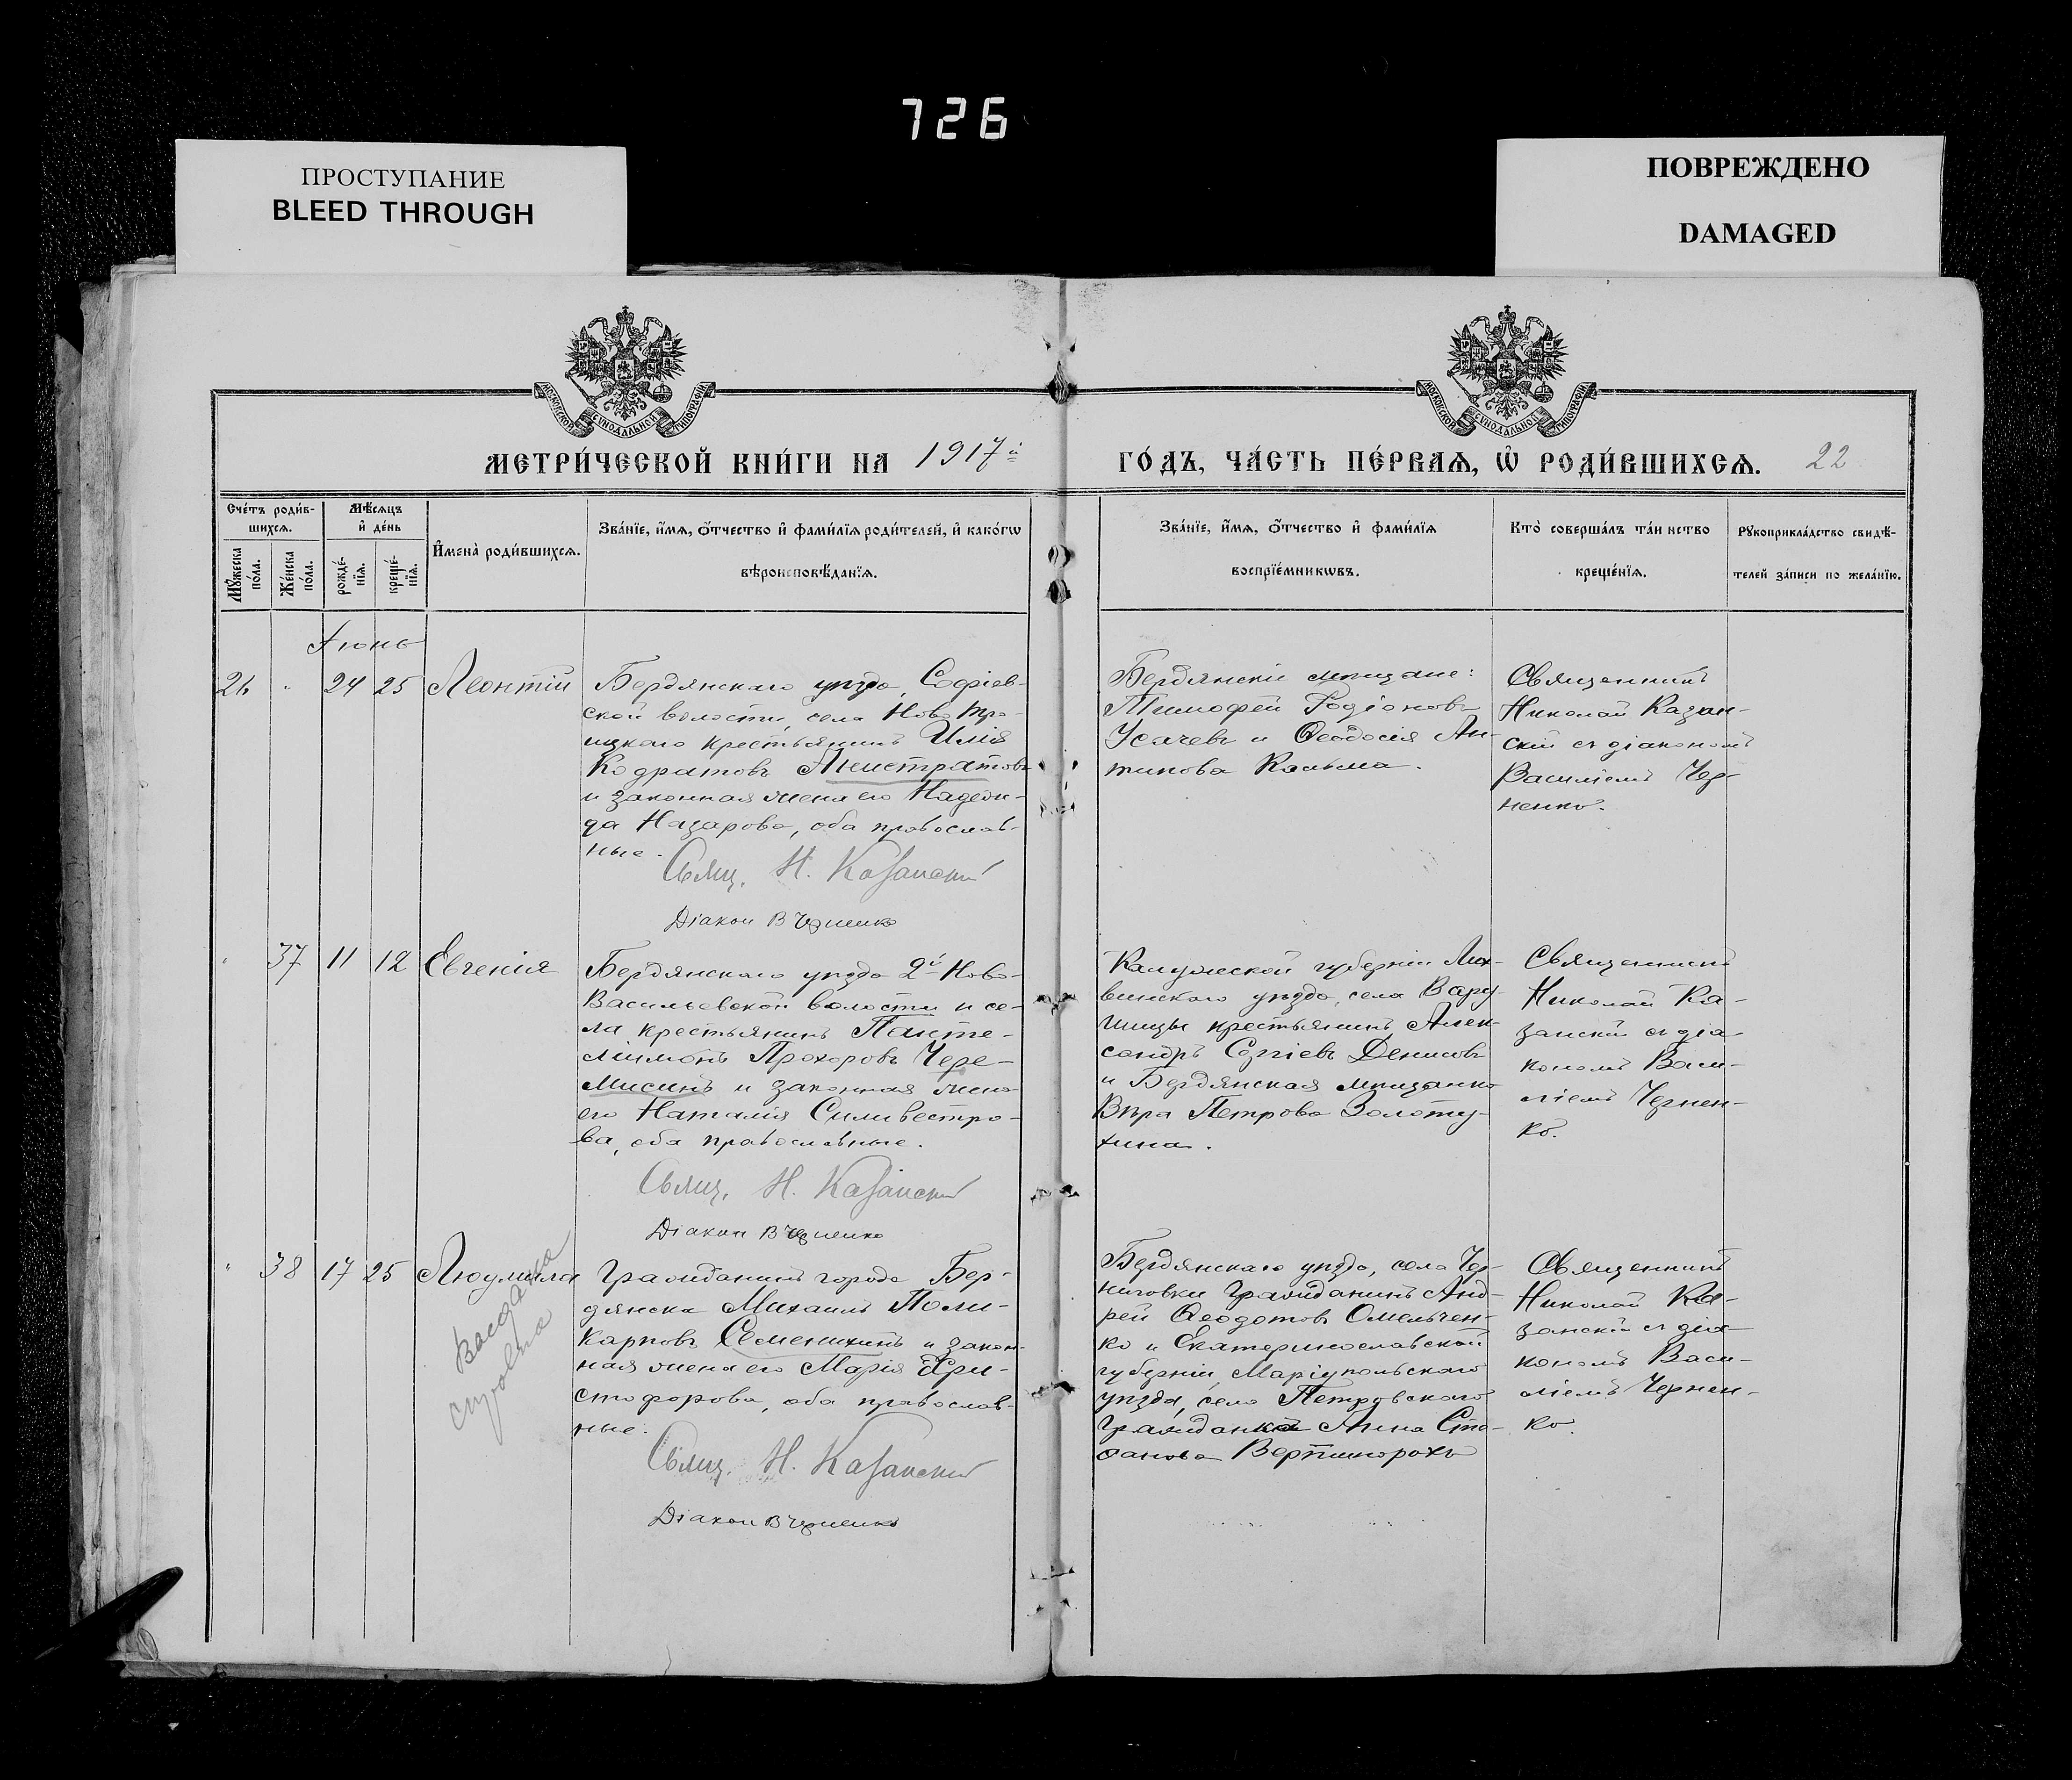 726
ПРОСТУПАНИЕ
BLEED THROUGH
ПОВРЕЖДЕНО
DAMAGED
МОСКОВСКОЙ СѴНОДАЛЬНОЙ ТИПОГРАФІИ
МОСКОВСКОЙ СѴНОДАЛЬНОЙ ТИПОГРАФІИ
МЕТРИ́ЧЕСКОЙ КНИ́ГИ НА 1917й
ГО́ДЪ, ЧА́СТЬ ПЕ́РВАѦ, Ѡ҆ РОДИ́ВШИХСѦ. 22
Сче́тъ роди́в-
шихсѧ.
Мꙋ́жеска по́ла.
Же́нска по́ла.
Мѣ́сѧцъ
и҆ де́нь
рожде́-
нїѧ.
креще́-
нїѧ.
И҆мена̀ роди́вшихсѧ.
Зва́нїе, и҆́мѧ, ѻ҆́тчество и҆ фами́лїѧ роди́телей, и҆ како́гѡ
вѣроисповѣ́данїѧ.
Зва́нїе, и҆́мѧ, ѻ҆́тчество и҆ фами́лїѧ
воспрїе́мникѡвъ.
Кто̀ соверша́лъ та́инство
креще́нїѧ.
Рꙋкоприкла́дство свидѣ́-
телей за́писи по жела́нїю.
Іюнь
24 25 Леонтій
Бердянскаго уѣзда, Софіев-
ской волости, села Ново Тро-
ицкаго крестьянинъ Илія
Кодратовъ
и законная жена его Надеж-
да Назарова, оба православ-
ные.
Свящ. Н. Казанскій
Діакон В Черненко
Бердянскіе мѣщане:
Тимофей Родіоновъ
Усачевъ и Ѳеодосія Ан-
типова
Священникъ
Николай Казан-
скій съ діакономъ
Василіемъ Чер-
ненко.
" 37 11 12 Евгенія
Бердянскаго уѣзда 2й Ново-
Васильевской волости и се-
ла крестьянинъ Панте-
лиимонъ Прохоровъ Чере-
мисинъ и законная жена
его Наталія Сильвестро-
ва, оба православные.
Свящ. Н. Казанскій
Діакон В Черненко
Калужской губерніи Лих-
винскаго уѣзда, села
крестьянинъ Алек-
сандръ Сергіевъ Денисовъ
и Бердянская мѣщанка
Вѣра Петрова Золоту-
хина.
Священникъ
Николай Ка-
занскій съ діа-
кономъ Васи-
ліемъ Чернен-
ко.
" 38 17 25 Людмила
Гражданинъ города Бер-
дянска Михаилъ Поли-
карповъ Семенихинъ и закон-
ная жена его Марія Хри-
стофорова, оба православ-
ные.
Свящ. Н. Казанскій
Діакон В Черненко
Бердянскаго уѣзда, села Чер-
ниговки гражданинъ Анд-
рей Ѳеодотовъ Омельчен-
ко и Екатеринославской
губерніи, Маріупольскаго
уѣзда, села Петровскаго
гражданка Анна Сте-
фанова Вертипорохъ
Священникъ
Николай Ка-
занскій съ діа-
кономъ Васи-
ліемъ Чернен-
ко.